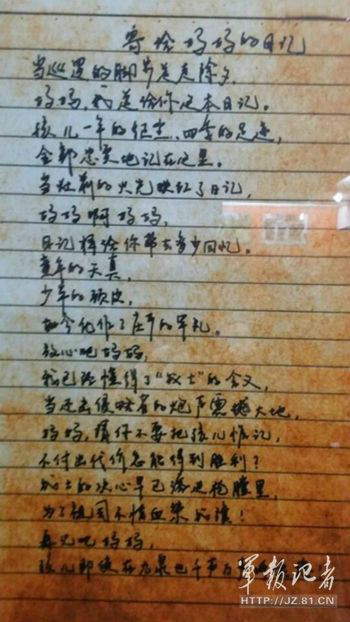 寄给妈妈的日记
当巡逻的脚步走走除夕,
妈妈,我送给你这本日记。
孩儿一年的征尘,四季的足迹,
全部忠实地记在这里。
当灶前的火光映红了日记,
妈妈啊妈妈,
日记将给你带去多少回忆。
童年的天真,
少年的顽皮,
如今化作了庄严的军礼。
放心吧妈妈,
我已经懂得了“战士”的含义,
当还击侵略者的炮声震撼大地,
妈妈,请你不要把孩儿惦记,
不付出代价怎能得到胜利?
战士的决心早已溶进枪膛里,
为了祖国不惜血染的
再见吧妈妈,
孩儿即使在九泉也千声万
軍報记者
HTTP://JZ.81.CN